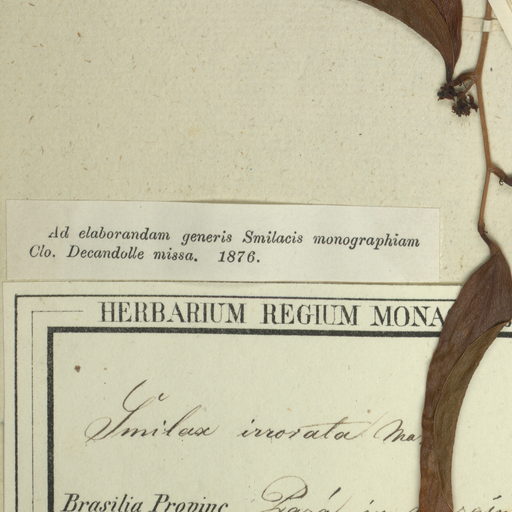 Ad elaborandam generis Smilacis monographiam
Clo. Decandolle missa. 1876.
HERBARIUM REGIUM MONA
Smilax irrorata Ma
Brasilia Provinc Pará in